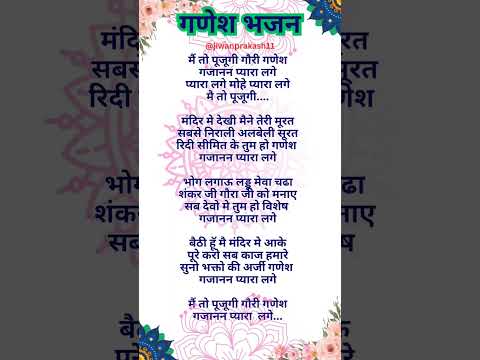 गणेश भजन
@jiwanprakash11
मैं तो पूजूगी गौरी गणेश
गजानन प्यारा लगे
प्यारा लगे मोहे प्यारा लगे
मै तो पूजूगी....
मंदिर मे देखी मैने तेरी मूरत
सबसे निराली अलबेली सूरत
रिदी सीमित के तुम हो गणेश
गजानन प्यारा लगे
भोग लगाऊ लड्डू मेवा चढा
शंकर जी गौरा जी को मनाए
सब देवो मे तुम हो विशेष
गजानन प्यारा लगे
बैठी हूँ मै मंदिर मे आके
पूरे करो सब काज हमारे
सुनो भक्तो की अर्जी गणेश
गजानन प्यारा लगे
मैं तो पूजूगी गौरी गणेश
गजानन प्यारा लगे...